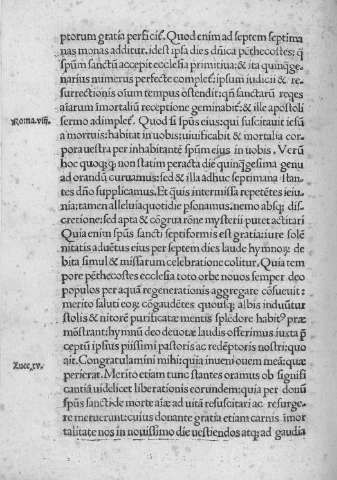 ptorum gratia perficit̃. Quod enim ad septem septima
nas monas additur, idest ipsa dies dñica pẽthecostes; q̃
spũm sanctũ accepit ecclesia primitiua; & ita quinq̃ge
narius numerus perfecte complet̃: ipsum iudicii & re
surrectionis oĩum tempus ostendit: qñ sanctarũ reqes
aĩarum imortaliũ receptione geminabit̃: & ille apostoli
Roma.viii.
sermo adimplet̃. Quod si spũs eius: qui suscitauit iesũ
a mortuis: habitat in uobis: uiuificabit & mortalia cor
pora uestra per inhabitantẽ spũm eius in uobis. Verũ
hoc quoq; q; non statim peracta die quinq̃gesima genu
ad orandũ curuamus: sed & illa adhuc septimana stan
tes dño supplicamus. Et q̃uis intermissa repetẽtes ieiu
nia: tamen alleluia quotidie psonamus. nemo absq; dis
cretione: sed apta & cõgrua rõne mysterii putet actitari
Quia enim spũs sancti septiformis est gratia: iure solẽ
nitatis aduẽtus eius per septem dies laude hymnorꝝ de
bita simul & missarum celebratione colitur. Quia tem
pore pẽthecostes ecclesia toto orbe nouos semper deo
populos per aquã regenerationis aggregare cõsueuit:
merito saluti eorꝝ cõgaudẽtes quousq; albis induũtur
stolis & nitorẽ purificatæ mentis splẽdore habit9 præ
mõstrant: hymnũ deo deuotæ laudis offerimus iuxta p̃
ceptũ ipsius piissimi pastoris ac redẽptoris nostri: quo
Luce.xv.
ait. Congratulamini mihi: quia inueni ouem meã: quæ
perierat. Merito etiam tunc stantes oramus ob signifi
cantiã uidelicet liberationis eorundem: quia per donũ
spũs sancti de morte aĩæ ad uitã resuscitari ac resurge
re meruerunt: cuius donante gratia etiam carnis imor
talitate nos in nouissimo die uestiendos atq; ad gaudia